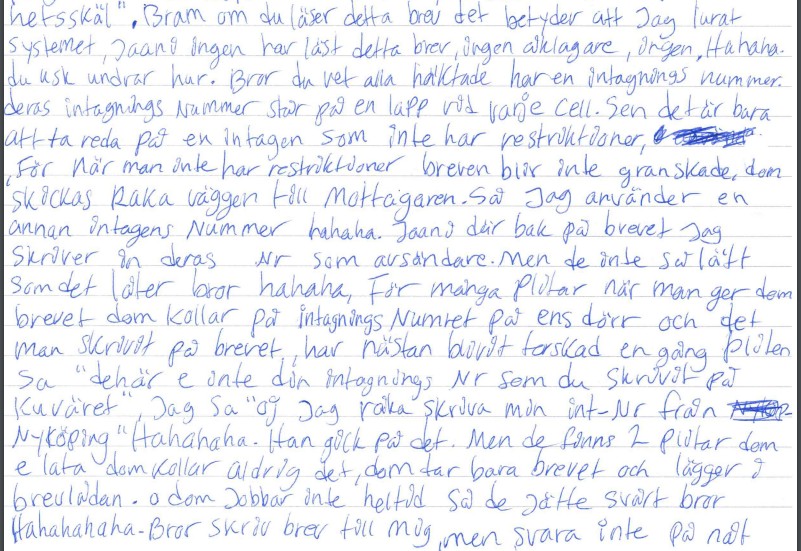 hetsskäl". Bram om du läser detta brev det betyder att Jag lurat
systemet, Jaani ingen har läst detta brev, ingen åklagare, ingen, Hahaha.
du usk undrar hur. Bror du vet alla häktade har en intagnings nummer.
deras intagnings Nummer står på en lapp vid varje cell. Sen det är bara
att ta reda på en intagen som inte har restriktioner,
, För när man inte har restriktioner breven blir inte granskade, dom
skickas Raka väggen till Mottagaren. Så Jag använder en
annan intagens Nummer hahaha. Jaani där bak på brevet Jag
skriver in deras Nr som avsändare. Men de inte så lätt
som det låter bror hahaha, För många Plitar när man ger dem
brevet dom kollar på intagnings Numret på ens dörr och det
man skrivit på brevet, har nästan blivit torskad en gång pliten
Sa "dehär e inte din intagnings Nr som du skrivit på
kuväret", Jag sa "oj Jag råka skriva min int-Nr från
Nyköping" Hahahaha. Han gick på det. Men de finns 2 plitar dom
e lata dom kollar aldrig det, dom tar bara brevet och lägger i
brevlådan. o dom Jobbar inte heltid så de Jätte svårt bror
Hahahahaha- Bror skriv brev till mig, men svara inte på nåt